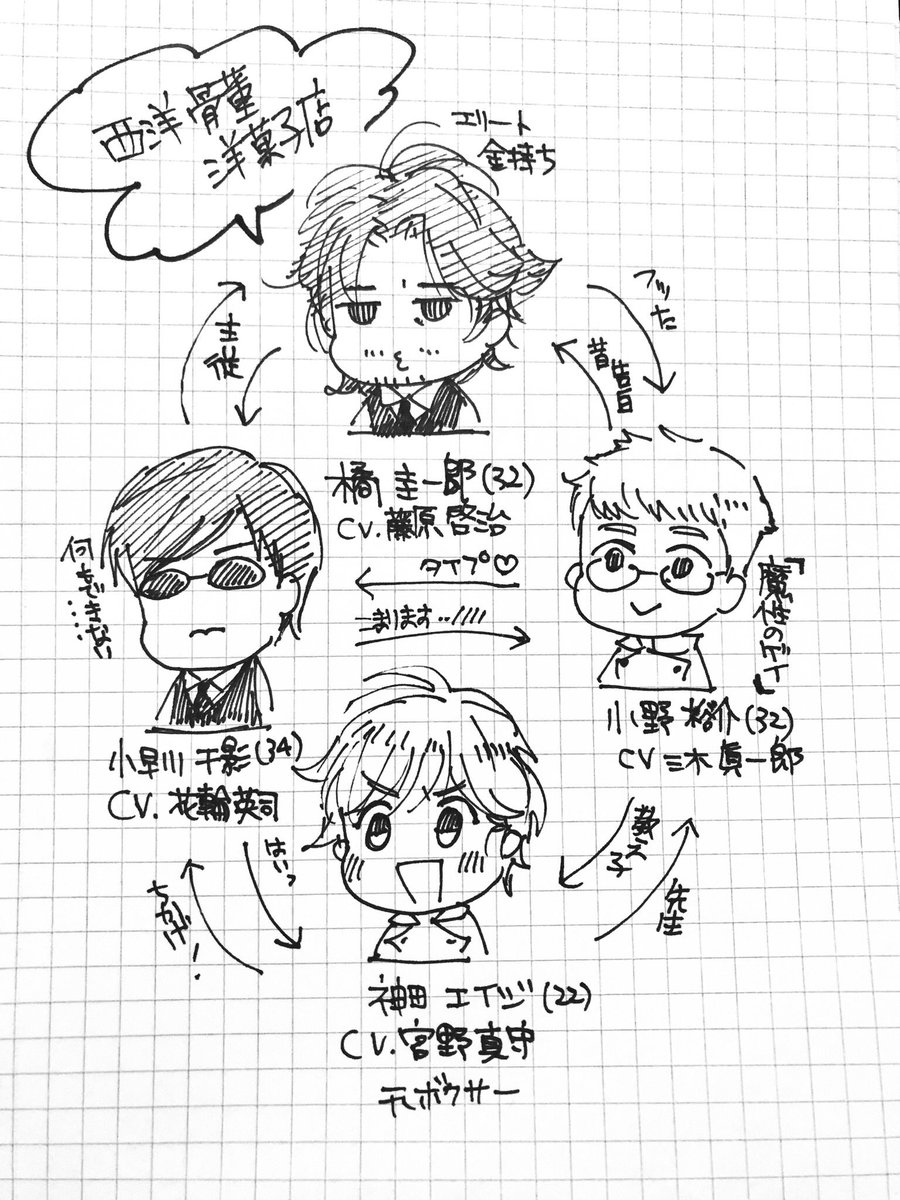 西洋骨董
洋菓子店
エリート
金持ち
主従
フッた
昔告白
橘 圭一郎(32)
CV.藤原啓治
何もできない…
タイプ♡
こまります…////
『魔性のゲイ』
小早川 千影(34)
CV.花輪英司
小野 裕介(32)
CV 三木眞一郎
はいっ
ちかげー!
教え子
先生
神田 エイジ(22)
CV.宮野真守
元ボクサー